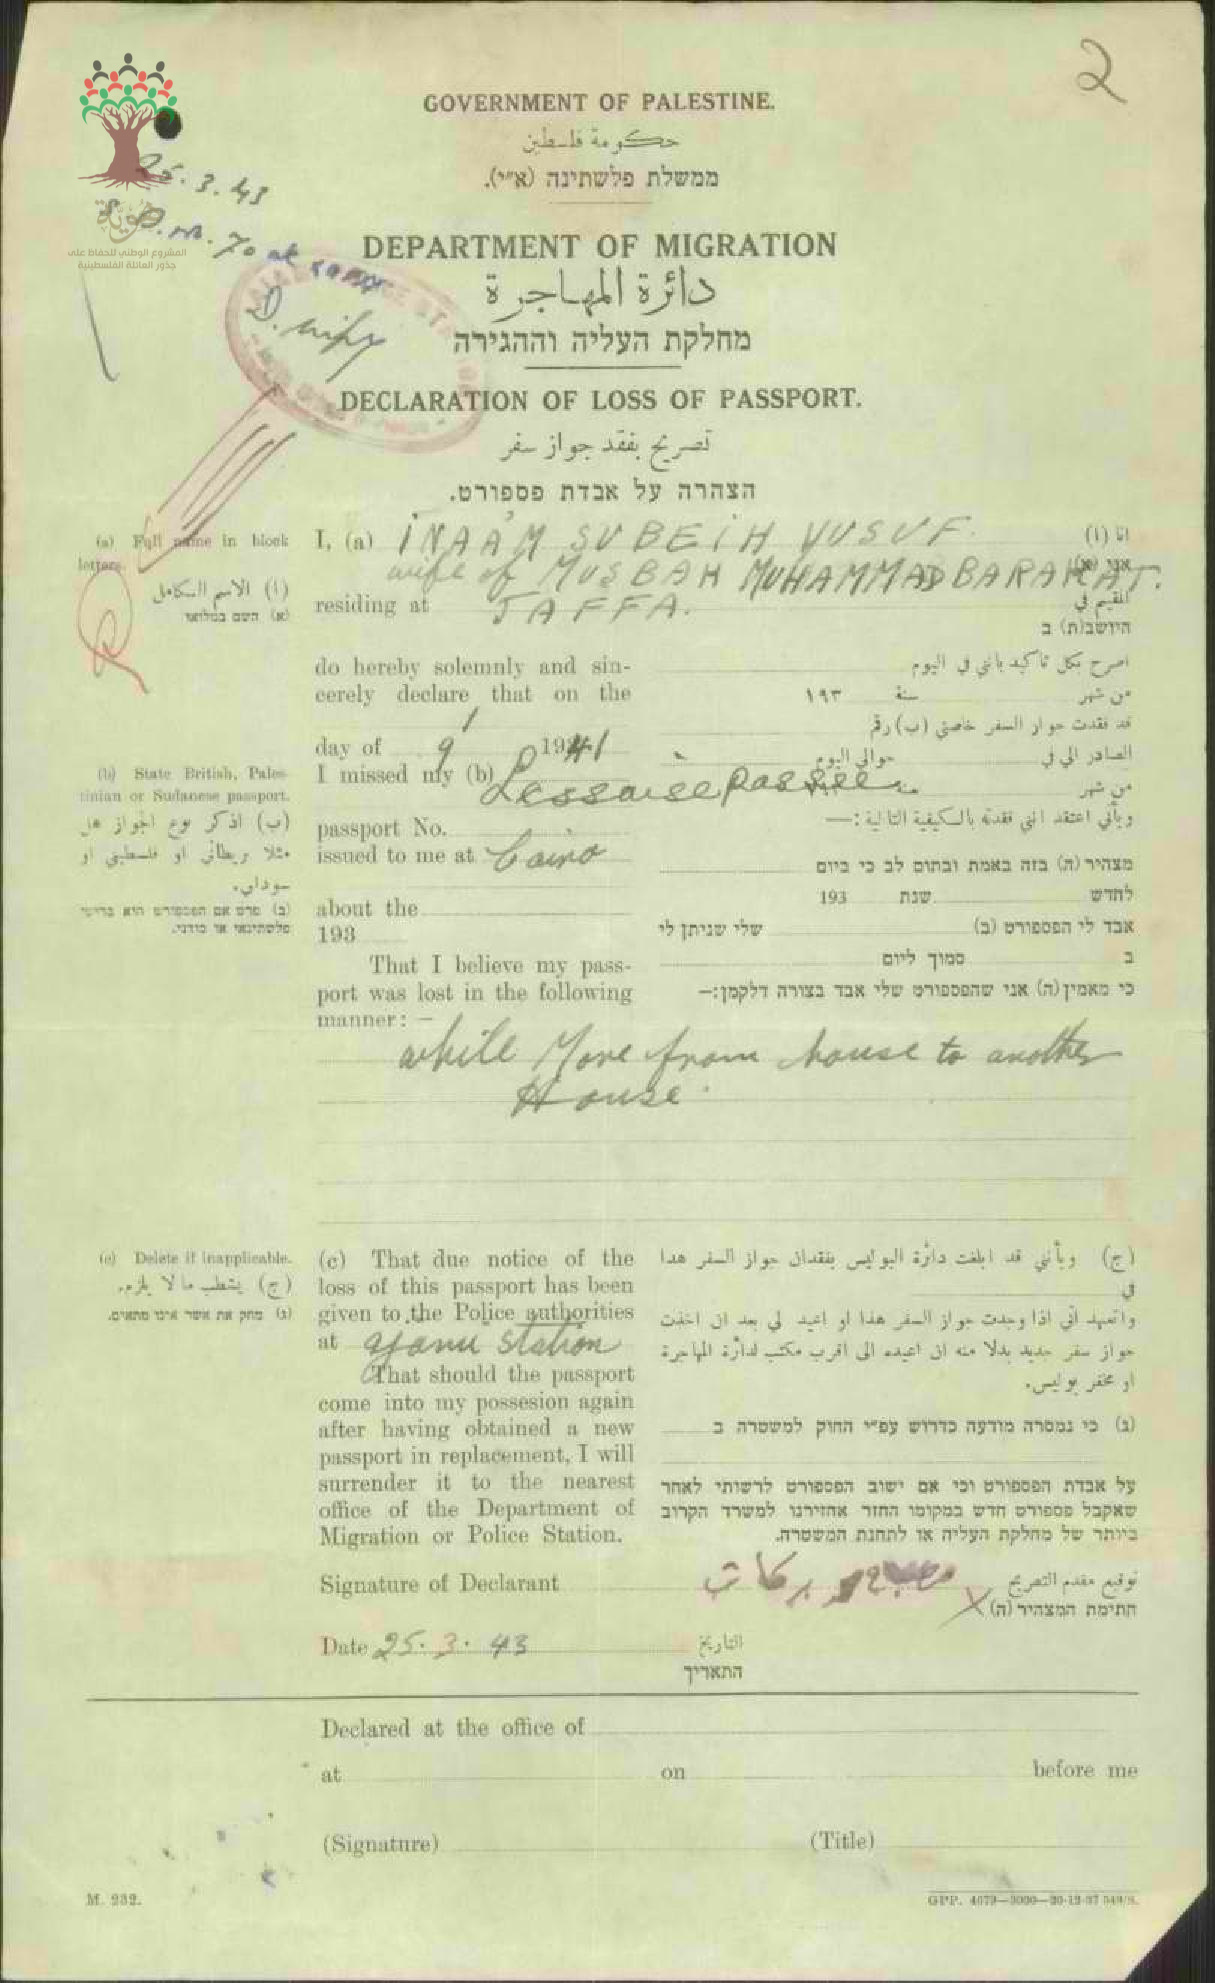 2
GOVERNMENT OF PALESTINE.
حكومة فلسطين
ממשלת פלשתינה (א״י).
25.3.43
هوية
المشروع الوطني للحفاظ على
جذور العائلة الفلسطينية
70 at
DEPARTMENT OF MIGRATION
دائرة المهاجرة
מחלקת העליה וההגירה
DECLARATION OF LOSS OF PASSPORT.
تصريح بفقد جواز سفر
הצהרה על אבדת פספורט.
(a) Full name in block letters.
(ا) الاسم الكامل
(א) השם במלואו
I, (a) INAA'M SUBEIH YUSUF.
انا (ا)
אני (א)
wife of MUSBAH MUHAMMAD BARAKAT.
residing at JAFFA.
المقيم في
היושב(ת) ב
do hereby solemnly and sin-
cerely declare that on the
day of 9 1941
I missed my (b)
passport No.
issued to me at Cairo
about the
193
اصرح بكل تأكيد بانني في اليوم
من شهر سنة ١٩٣
قد فقدت جواز السفر خاصتي (ب) رقم
الصادر الي في حوالي اليوم
من شهر
وبأني اعتقد انني فقدته بالكيفية التالية :—
מצהיר (ה) בזה באמת ובתום לב כי ביום
לחדש שנת 193
אבד לי הפספורט (ב) שלי שניתן לי
ב סמוך ליום
כי מאמין(ה) אני שהפספורט שלי אבד בצורה דלקמן:—
(b) State British, Pales-
tinian or Sudanese passport.
(ب) اذكر نوع الجواز هل
مثلا بريطاني او فلسطيني او
سوداني.
(ב) פרט אם הפספורט הוא בריטי
פלשתינאי או סודני.
That I believe my pass-
port was lost in the following
manner: —
while Move from house to another
House.
(c) Delete if inapplicable.
(ج) يشطب ما لا يلزم.
(ג) מחק את אשר אינו מתאים.
(c) That due notice of the
loss of this passport has been
given to the Police authorities
at station
That should the passport
come into my possesion again
after having obtained a new
passport in replacement, I will
surrender it to the nearest
office of the Department of
Migration or Police Station.
(ج) وبأنني قد ابلغت دائرة البوليس بفقدان جواز السفر هذا
في
واتعهد اني اذا وجدت جواز السفر هذا او اعيد لي بعد ان اخذت
جواز سفر جديد بدلا منه ان اعيده الى اقرب مكتب لدائرة المهاجرة
او مخفر بوليس.
(ג) כי נמסרה מודעה כדרוש עפ״י החוק למשטרה ב
על אבדת הפספורט וכי אם ישוב הפספורט לרשותי לאחר
שאקבל פספורט חדש במקומו החזר אחזירנו למשרד הקרוב
ביותר של מחלקת העליה או לתחנת המשטרה.
Signature of Declarant بركات
توقيع مقدم التصريح
חתימת המצהיר (ה)
Date 25.3.43
التاريخ
התאריך
Declared at the office of
at on before me
(Signature) (Title)
M. 232.
GPP. 4079—3000—20-12-37